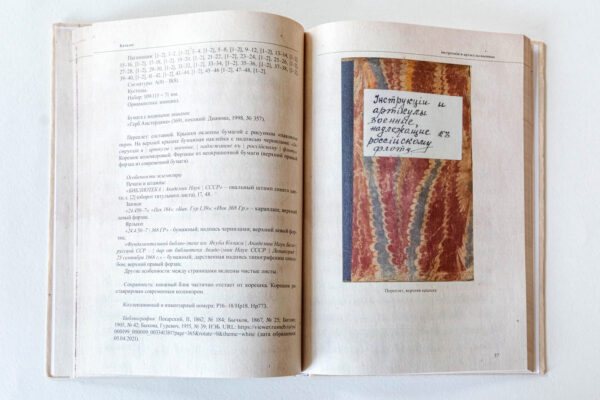 Каталог
Пагинация: [1-2], 1-2, [1-2], 3-4, [1-2], 5-8, [1-2], 9-12, [1-2], 13-14, [1-2],
15-16, [1-2], 17-18, [1-2], 19-20, [1-2], 21-22, [1-2], 23-24, [1-2], 25-26, [1-2],
27-28, [1-2], 29-30, [1-2], 31-32, [1-2], 33-34, [1-2], 35-36, [1-2], 37-38, [1-2],
39-40, [1-2], 41-42, [1-2], 43-44, [1-2], 45-46, [1-2], 47-48, [1-2].
Сигнатуры:
Кустоды.
Набор:
Орнаментика: инициал.
Бумага с водяными знаками:
«Герб Амстердама» (1691, похожий: Дианова, 1998, № 357).
Переплет: составной. Крышки оклеены бумагой с рисунком
На верхней крышке бумажная наклейка с надписью чернилами:
Корешок коленкоровый. Форзацы из немраморной бумаги (верхний правый
форзац из современной бумаги).
Особенности экземпляра
Печати и штампы:
«БИБЛИОТЕКА | Академии Наук | СССР» – овальный штамп
с. [2] (оборот титульного листа), 17, 48.
Записи:
– карандаш; верхний
левый форзац.
Ярлыки:
– бумажный; верхний левый форзац.
«Фундаментальная библиотека им. Якуба Коласа | Академии Наук Белорусской
ССР | дар от библиотеки Академии Наук СССР | Ленинград |
23 сентября 1968 г.» – бумажный, дарственная надпись типографским способом;
верхний правый форзац.
Другие особенности: между страницами вклеены чистые листы.
Сохранность: книжный блок частично отстает от корешка. Корешок
реставрирован современным коленкором.
Коллекционный и инвентарный номера: Р16-18/Нр18, Нр773.
Библиография: Пекарский, II, 1862, № 184; Бычков, 1867, № 25; Битовт,
1905, № 42; Быкова, Гуревич, 1955, № 39; НЭБ. URL: https://viewer.rusneb.ru/ru/
000199_000009_003340387?page=365&rotate=0&theme=white (дата обращения:
05.04.2021).
Инструкции и артикулы военные
Інструкціи и
артикулы
военные,
надлежащие къ
россiйскому
флоту
Переплет, верхняя крышка
57